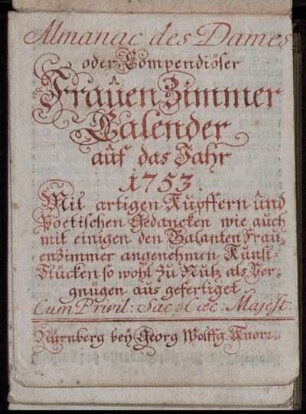 Almanac des Dames
oder Compendiöser
Frauen Zimmer
Calender
auf das Jahr
1753.
Mit artigen Kupffern und
Poetischen Gedancken wie auch
mit einigen den Galanten Frau-
enzimmer angenehmen Kunst-
Stücken so wohl zu Nutz als Ver-
gnügen aus gefertiget.
Cum Privil: Sac: Cæs: Majest:
Nürnberg bey Georg Wolffg. Knorr.